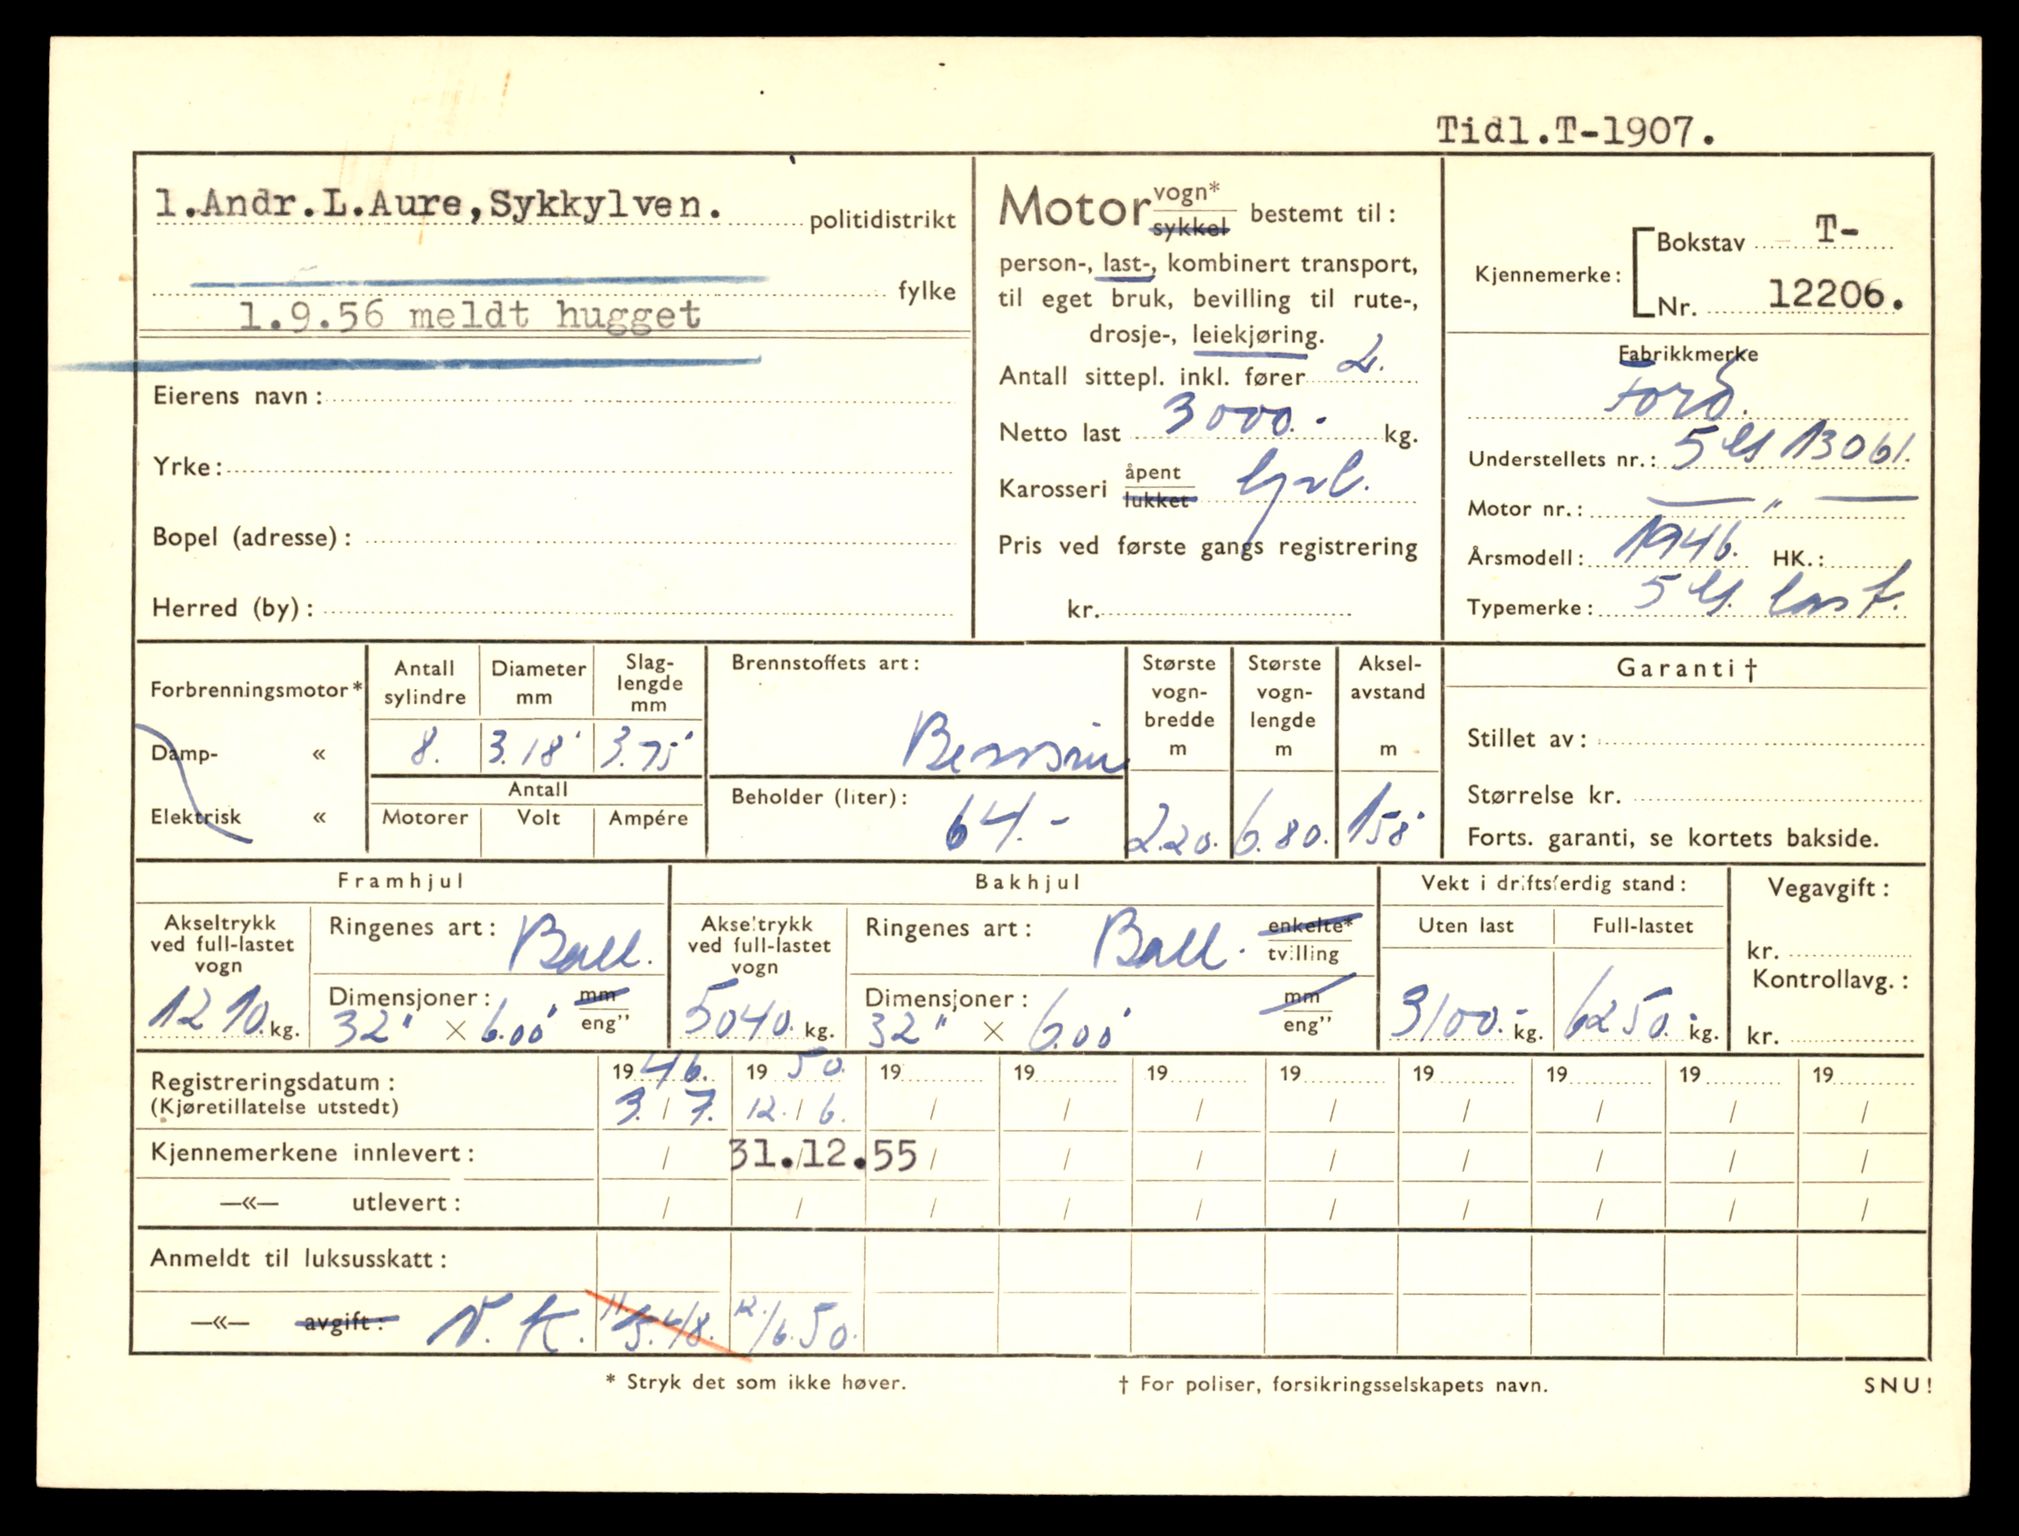 Tidl.T-1907.
1.Andr.L.Aure,Sykkylven. politidistrikt
fylke
1.9.56 meldt hugget
Eierens navn:
Yrke:
Bopel (adresse):
Herred (by):
Motor vogn* sykkel bestemt til:
person-, last-, kombinert transport,
til eget bruk, bevilling til rute-,
drosje-, leiekjøring.
Antall sittepl. inkl. fører 2.
Netto last 3000.- kg.
Karosseri åpent lukket
Pris ved første gangs registrering
kr.
Kjennemerke: Bokstav T-
Nr. 12206.
Fabrikkmerke
Ford.
Understellets nr.: 13061.
Motor nr.: — " —
Årsmodell: 1946. HK.:
Typemerke: last.
Forbrenningsmotor*
Damp- «
Elektrisk «
Antall sylindre
8.
Diameter mm
3.18"
Slag-
lengde
mm
3.75"
Antall
Motorer Volt Ampére
Brennstoffets art:
Benssin
Beholder (liter):
64.-
Største
vogn-
bredde
m
2.20.
Største
vogn-
lengde
m
6.80.
Aksel-
avstand
m
158"
Garanti †
Stillet av:
Størrelse kr.
Forts. garanti, se kortets bakside.
Framhjul
Akseltrykk
ved full-lastet
vogn
1210. kg.
Ringenes art: Ball.
Dimensjoner: mm eng"
32" × 6.00"
Bakhjul
Akseltrykk
ved full-lastet
vogn
5040. kg.
Ringenes art: Ball. enkelte* tvilling
Dimensjoner: mm eng"
32" × 6.00"
Vekt i driftsferdig stand:
Uten last Full-lastet
3100.- kg. 6250.- kg.
Vegavgift:
kr.
Kontrollavg.:
kr.
Registreringsdatum: 1946. 1950. 19 19 19 19 19 19 19 19
(Kjøretillatelse utstedt) 3./7. 12./6. / / / / / / / /
Kjennemerkene innlevert: / 31.12.55 / / / / / / / /
—«— utlevert: / / / / / / / / / /
Anmeldt til luksusskatt:
—«— avgift: V.K. 12./6.50.
* Stryk det som ikke høver. † For poliser, forsikringsselskapets navn. SNU!